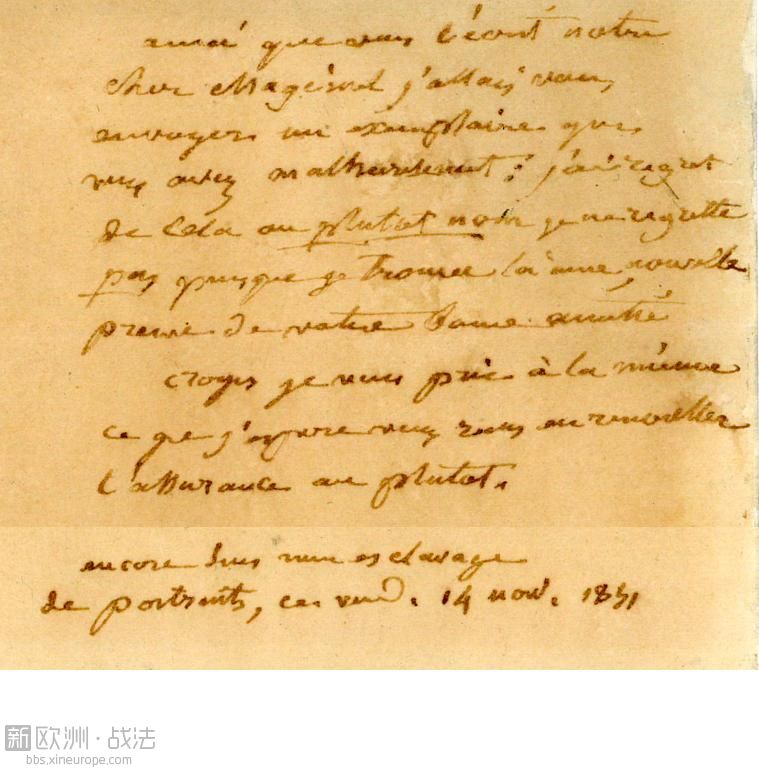 ainsi que vous l'écrit notre
cher Magimel j'allais vous
envoyer un exemplaire que
vous avez malheureusement j'ai regret
de cela ou plutot non je ne regrette
pas puisque je trouve là une nouvelle
preuve de votre bonne amitié
croyez je vous prie à la mienne
ce que j'espere vous en renouveller
l'assurance au plutot.
encore sous mon esclavage
de portraits, ce vend. 14 nov. 1851
新欧洲·战法
bbs.xineurope.com